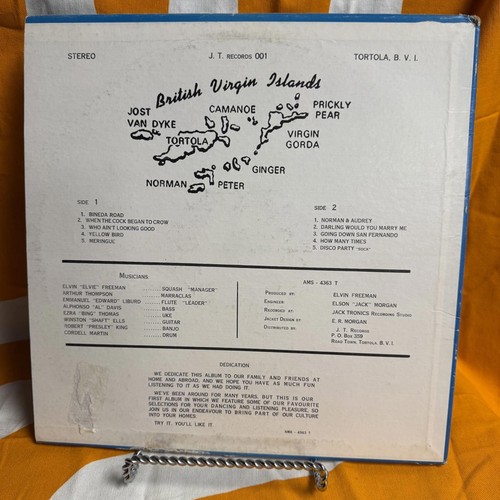 STEREO J. T. RECORDS 001 TORTOLA, B. V. I.
British Virgin Islands
JOST VAN DYKE
CAMANOE
PRICKLY PEAR
TORTOLA
VIRGIN GORDA
GINGER
NORMAN
PETER
SIDE 1
1. BINEDA ROAD
2. WHEN THE COCK BEGAN TO CROW
3. WHO AIN'T LOOKING GOOD
4. YELLOW BIRD
5. MERINGUE
SIDE 2
1. NORMAN & AUDREY
2. DARLING WOULD YOU MARRY ME
3. GOING DOWN SAN FERNANDO
4. HOW MANY TIMES
5. DISCO PARTY "ROCK"
MUSICIANS:
ELVIN "ELVIE" FREEMAN SQUASH "MANAGER"
ARTHUR THOMPSON MARRACLAS
EMMANUEL "EDWARD" LIBURD FLUTE "LEADER"
ALPHONSO "AL" DAVIS BASS
EZRA "BING" THOMAS UKE
WINSTON "SHAFT" ELLS GUITAR
ROBERT "PRESLEY" KING BANJO
CORDELL MARTIN DRUM
AMS - 4363 T
PRODUCED BY: ELVIN FREEMAN
ENGINEER: ELSON "JACK" MORGAN
RECORDED AT: JACK TRONICS RECORDING STUDIO
JACKET DESIGN BY: E. R. MORGAN
DISTRIBUTED BY: J. T. RECORDS
P. O. BOX 359
ROAD TOWN, TORTOLA, B. V. I.
DEDICATION
WE DEDICATE THIS ALBUM TO OUR FAMILY AND FRIENDS AT
HOME AND ABROAD, AND WE HOPE YOU HAVE AS MUCH FUN
LISTENING TO IT AS WE HAD DOING IT.
WE'VE BEEN AROUND FOR MANY YEARS, BUT THIS IS OUR
FIRST ALBUM IN WHICH WE FEATURE SOME OF OUR FAVOURITE
SELECTIONS FOR YOUR DANCING AND LISTENING PLEASURE, SO
JOIN US IN OUR ENDEAVOUR TO BRING PART OF OUR CULTURE
INTO YOUR HOMES.
TRY IT, YOU'LL LIKE IT
AMS - 4363 T